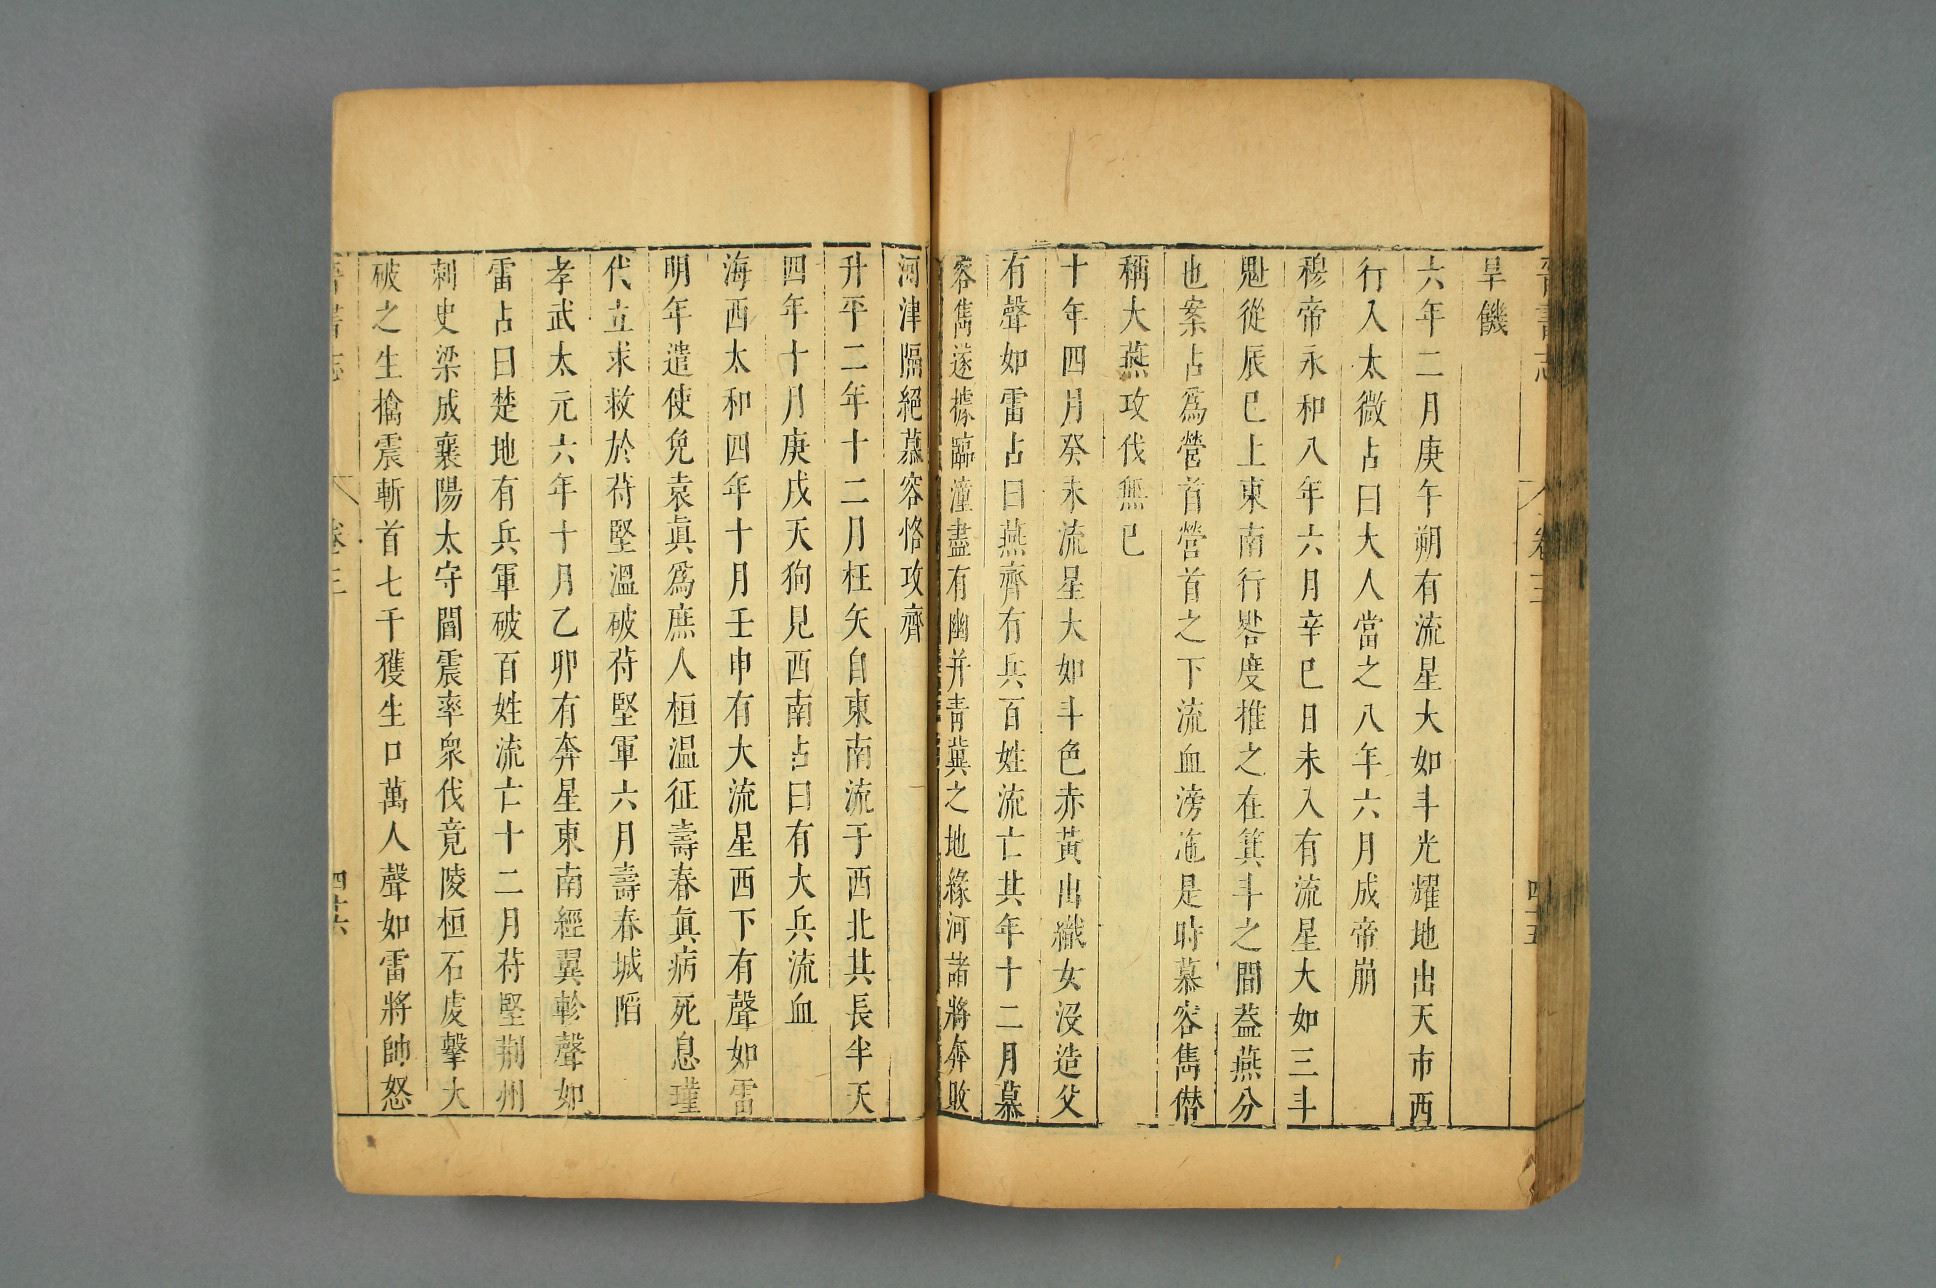 晉書志 卷三 四十五
旱饑
六年二月庚午朔有流星大如斗光耀地出天市西
行入太微占曰大人當之八年六月成帝崩
穆帝永和八年六月辛巳日未入有流星大如三斗
魁從辰巳上東南行晷度推之在箕斗之間葢燕分
也案占爲營首營首之下流血滂沲是時慕容雋僭
稱大燕攻伐無已
十年四月癸未流星大如斗色赤黃出織女沒造父
有聲如雷占曰燕齊有兵百姓流亡其年十二月慕
容雋遂據臨潼盡有幽并青冀之地緣河諸將奔敗
河津隔絕慕容恪攻齊
升平二年十二月枉矢自東南流于西北其長半天
四年十月庚戌天狗見西南占曰有大兵流血
海西太和四年十月壬申有大流星西下有聲如雷
明年遣使免袁眞爲庶人桓温征壽春眞病死息瑾
代立求救於苻堅溫破苻堅軍六月壽春城陷
孝武太元六年十月乙卯有奔星東南經翼軫聲如
雷占曰楚地有兵軍破百姓流亡十二月苻堅荆州
刺史梁成襄陽太守閻震率衆伐竟陵桓石虔擊大
破之生擒震斬首七千獲生口萬人聲如雷將帥怒
晉書志 卷三 四十六